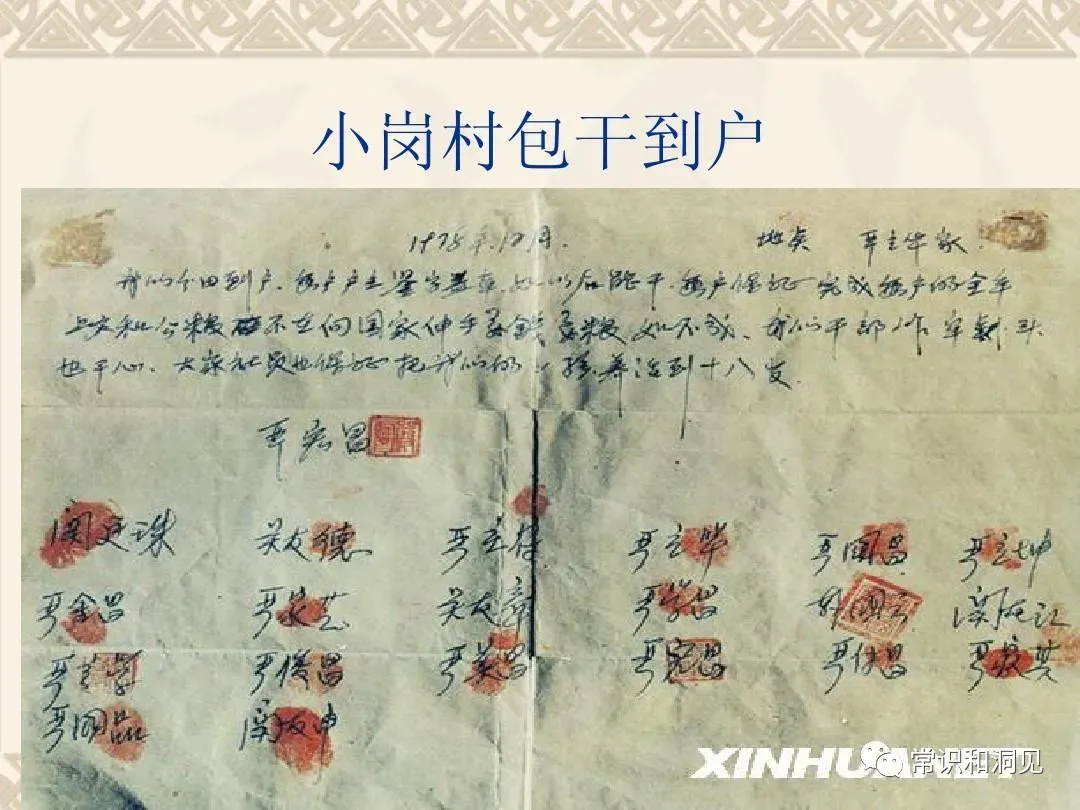 小岗村包干到户
1978年12月. 地点 严立华家.
我们分田到户、每户户主签字盖章、如以后能干、每户保证完成每户的全年
上交和公粮 不在向国家伸手要钱要粮 如不成、我们干部作牢剎头
也干心、大家社员也保证把我们的小孩养活到十八岁.
严宏昌
关廷珠 关友德 严立符 严立华 严国昌 严立坤
严金昌 严家芝 关友章 严学昌 韩国云 关友江
严立学 严俊昌 严美昌 严宏昌 严付昌 严家其
严国品 关友申
XINHUANET
常识和洞见